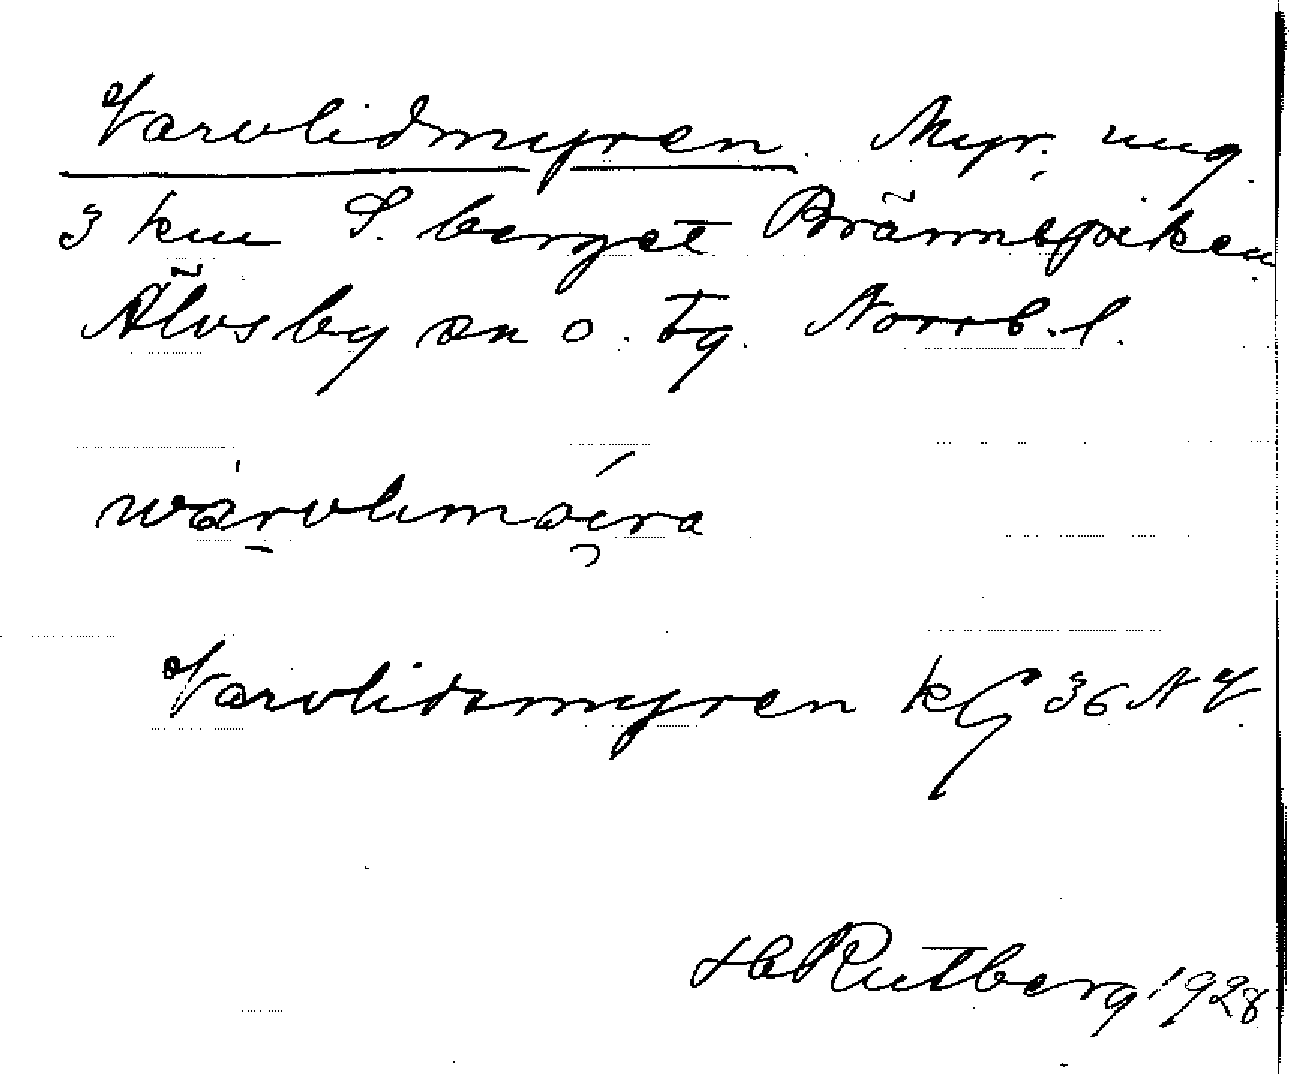 Varvlidmyren. Myr. ung.
3 km S. berget Brännspiken
Älvsby sn o. tg. Norrb. l.
Varvlidsmyren kG 36 NV.
H Rutberg 1928